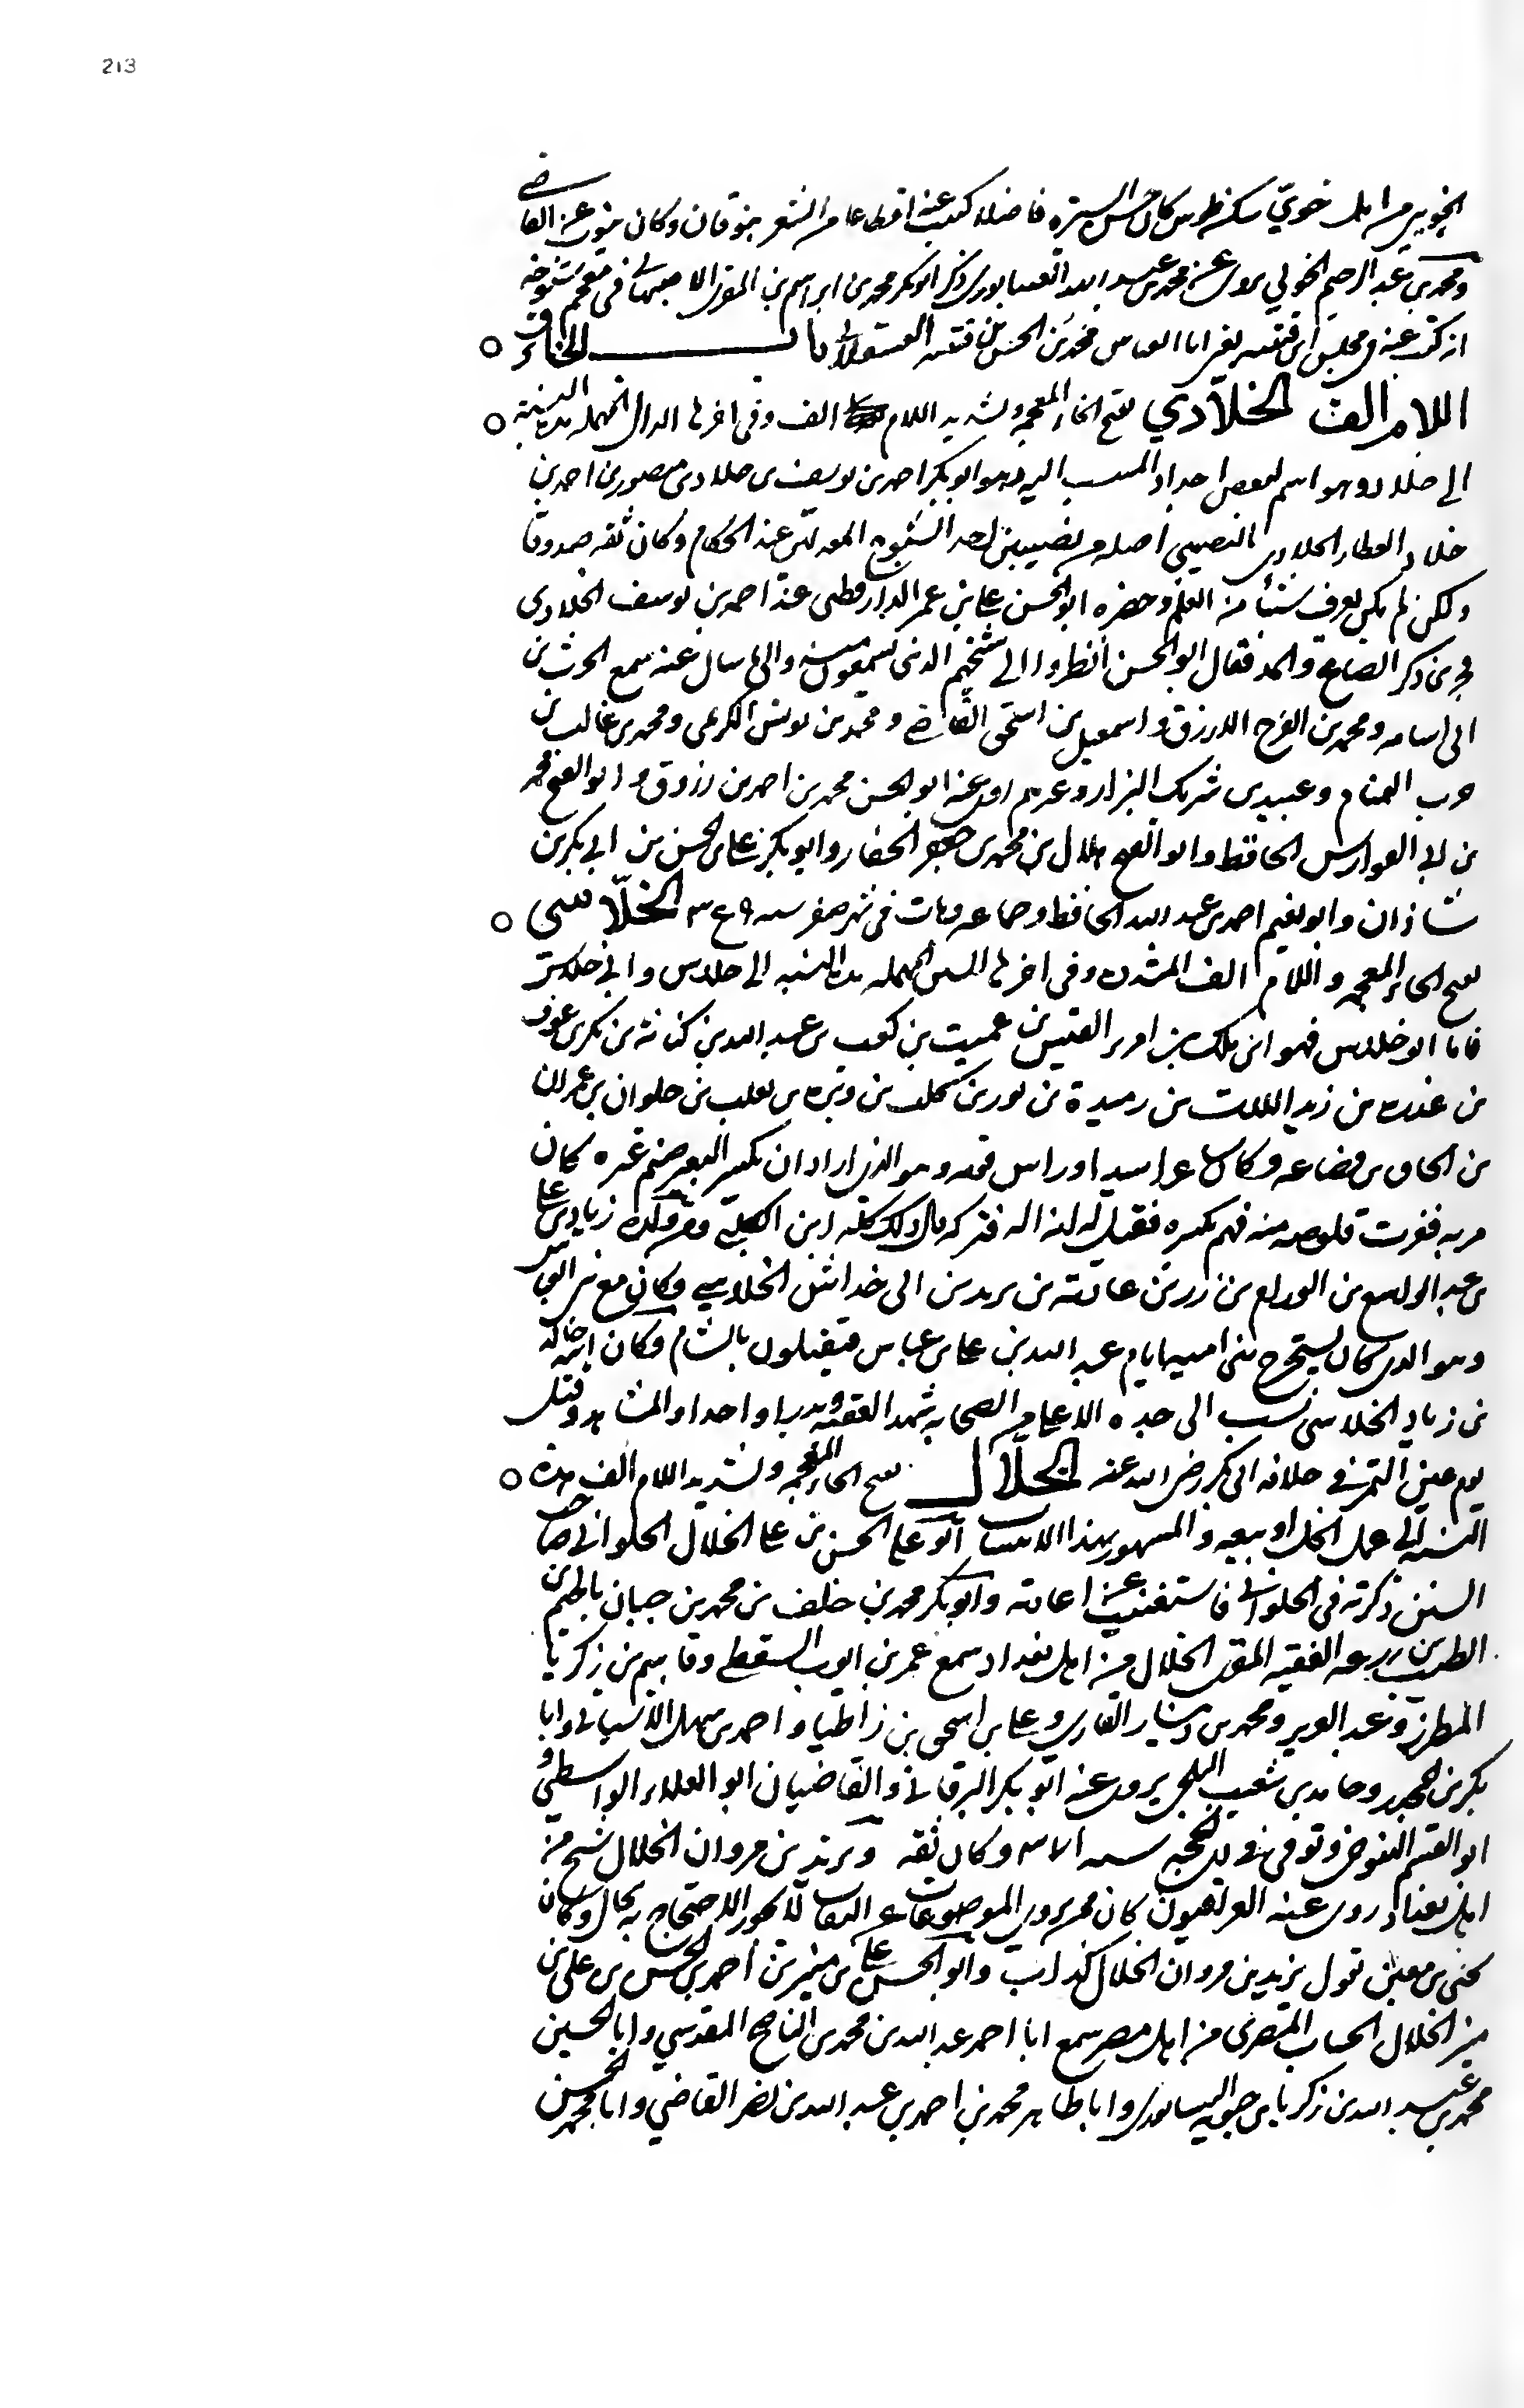 213
الخويي من اهل خوي سكن طوس كان حسن السيرة فاضلا كتبت عنه اقطاعا من الشعر بنوقان وكان ينوب عن القاضي
ومحمد بن عبد الرحيم الخوئي يروى عن محمد بن عبد الله النيسابورى ذكر ابو بكر محمد بن ابراهيم بن المقرئ الاصبهاني فى معجم شيوخه
انه كتب عنه فى مجلس ابن قتيبه يعنى ابا العباس محمد بن الحسن بن قتيبه العسقلاني باب الخاء و
اللام الف الخلادي بفتح الخاء المعجمه وتشديد اللام الف وفى اخرها الدال المهمله هذه النسبة
الى خلاد وهو اسم لبعض اجداد المنتسب اليه وهو ابو بكر احمد بن يوسف بن خلاد بن منصور بن احمد بن
خلاد العطار الخلادى النصيبى اصله من نصيبين احد الشيوخ المعدلين عند الحكام وكان ثقه صدوقا
ولكن لم يكن يعرف شيئا من العلم وحضره ابو الحسن على بن عمر الدارقطنى عند احمد بن يوسف الخلادى
فجرى ذكر الصاع والمد فقال ابو الحسن انظروا الى شيخهم الذى يسمعون منه والى سال عنه سمع الحرث بن
ابى اسامه ومحمد بن الفرج الازرق واسمعيل بن اسحق القاضي ومحمد بن يونس الكديمى ومحمد بن غالب بن
حرب التمتام وعبيد بن شريك البزار وغيرهم روى عنه ابو الحسن محمد بن احمد بن رزوق وابو الفتح محمد
بن ابي الفوارس الحافظ وابو الفتح هلال بن محمد بن جعفر الحفار وابو بكر على بن الحسن بن ابي بكر بن
شاذان وابو نعيم احمد بن عبد الله الحافظ وجماعه ومات فى شهر صفر سنه الخلاسى
بفتح الخاء المعجمه واللام الف المشدده وفى اخرها السين المهمله هذه النسبه الى خلاس وابى خلاس
فاما ابو خلاس فهو ابن ملك بن امرء القيس بن عميت بن كعب بن عبد الله بن كنانة بن بكر بن عوف
بن عذره بن زيد اللات بن رفيدة بن ثور بن كلب بن وبره بن تغلب بن حلوان بن عمران
بن الحاف بن قضاعه وكان شاعرا سيدا وراس قومه وهو الذى اراد ان يكسر اليعبر صنم عنزه كان
مر به فنفرت قلوصه منه فهم بكسره فقيل له انه اله فتركه قال ذلك كله ابن الكلبي ومن ولده زياد بن على
بن عبد الواسع بن الوداع بن زرين عائدة بن يزيد بن ابى خداش الخلاسي وكان مع بنى العباس
وهو الذى كان يستخرج بنى اميه ايام عبد الله بن على بن عباس فيقتلون بالشام وكان ابنه خالد
بن زياد الخلاسى نسب الى جده الاعلى من الصحابه شهد العقبه وبدرا واحدا والمشاهد وقتل
يوم عين التمر فى خلافه ابى بكر رضى الله عنه الخلال بفتح الخاء المعجمه وتشديد اللام الف هذه
النسبه الى عمل الخل او بيعه والمشهور بهذا الانتساب ابو على الحسن بن على الخلال الحلوانى صاحب
السنن ذكرته فى الحلوانى فاستغنيت عن اعادته وابو بكر محمد بن خلف بن محمد بن جيان بالجيم بن
الطيب بن زرعه الفقيه المقرئ الخلال من اهل بغداد سمع عمر بن ايوب السقطى وقاسم بن زكريا
المطرز و ومحمد بن وعلى بن اسحق بن زاطيا واحمد بن سهل الاشنانى وابا
بكر بن المجدر وحامد بن شعيب البلخى يروى عنه ابو بكر البرقانى والقاضيان ابو العلاء الواسطى و
ابو القسم التنوخى وتوفى فى ذى الحجه سنه ٣٧١ وكان ثقه ويزيد بن مروان الخلال شيخ من
اهل بغداد روى عنه العراقيون كان ممن يروى الموضوعات عن الثقات لا يجوز الاحتجاج به بحال وكان
يحيى بن معين يقول يزيد بن مروان الخلال كذاب وابو الحسن على بن منير بن احمد بن الحسن بن على بن
منير الخلال الخشاب المصرى من اهل مصر سمع ابا احمد عبد الله بن محمد بن الناصح المقدسي وابا الحسين
محمد بن عبد الله بن زكريا بن حيويه النيسابورى وابا طاهر محمد بن احمد بن عبد الله بن نصر القاضي وابا محمد الحسن